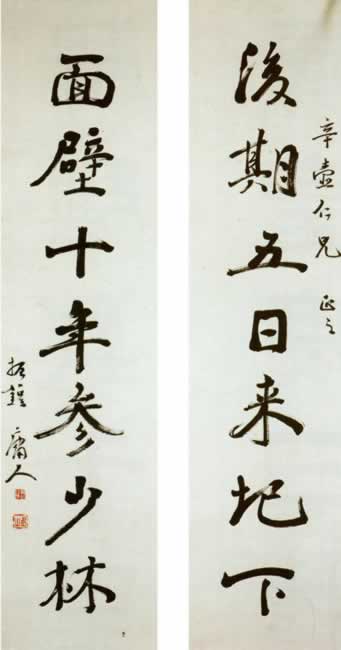 辛壺仁兄 正之
後期五日来圯下
面壁十年參少林
庸人